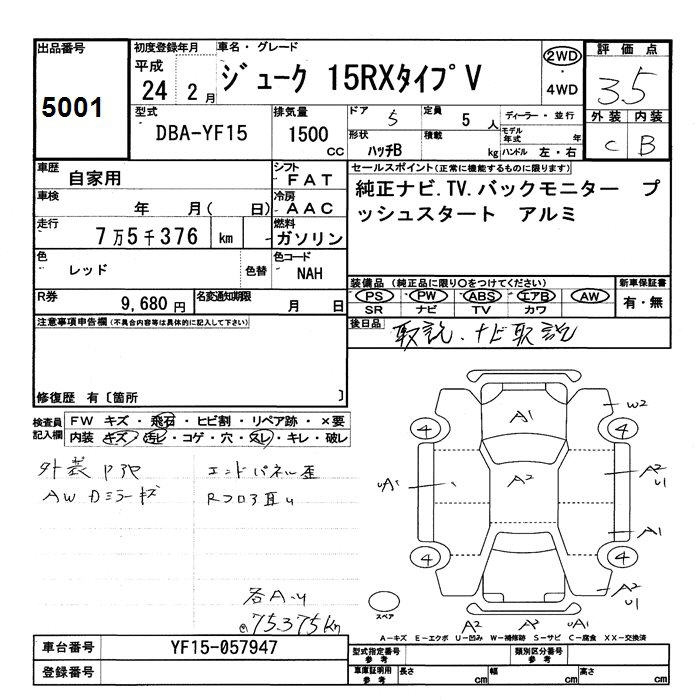 出品番号
5001
初度登録年月
平成
24 2 月
車名・グレード
ジューク 15RXタイプV
2WD
・
4WD
評価点
3.5
外装 内装
C B
型式
DBA-YF15
排気量
1500
CC
ドア 5
定員 5 人
ディーラー・並行
形状 ハッチB
積載 kg
モデル年式 年
ハンドル 左・右
車歴
自家用
シフト
FAT
車検
年 月( 日)
冷房
AAC
走行
7万5千376 km
燃料
ガソリン
色
レッド
色替
色コード
NAH
R券
9,680 円
名変通知期限
月 日
セールスポイント(正常に機能するものに限ります)
純正ナビ.TV.バックモニター プ
ッシュスタート アルミ
装備品(純正品に限り○をつけてください)
PS PW ABS エアB AW
SR ナビ TV カワ
新車保証書
有・無
後日品
取説.ナビ取説
注意事項申告欄(不具合内容等は具体的に記入して下さい)
修復歴 有〔箇所 〕
検査員
記入欄
FW キズ・飛石・ヒビ割・リペア跡・×要
内装 キズ・汚レ・コゲ・穴・スレ・キレ・破レ
エンドパネル歪
各A・U
75375km
A1
W2
4
4
A2
UA1
A2
U1
A1
4
4
A2
U1
スペア
A2
UA1
A-キズ E-エクボ U-凹み W-補修跡 S-サビ C-腐食 XX-交換済
車台番号
YF15-057947
登録番号
型式指定番号
参考
類別区分番号
参考
車庫証明用
参考
長さ cm
幅 cm
高さ cm